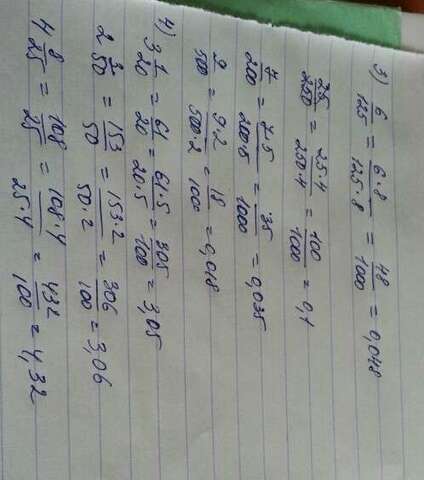 3) 6/125 = 6·8/125·8 = 48/1000 = 0,048
25/250 = 25·4/250·4 = 100/1000 = 0,1
7/200 = 7·5/200·5 = 35/1000 = 0,035
9/500 = 9·2/500·2 = 18/1000 = 0,018
4) 3 1/20 = 61/20 = 61·5/20·5 = 305/100 = 3,05
2 3/50 = 153/50 = 153·2/50·2 = 306/100 = 3,06
4 8/25 = 108/25 = 108·4/25·4 = 432/100 = 4,32